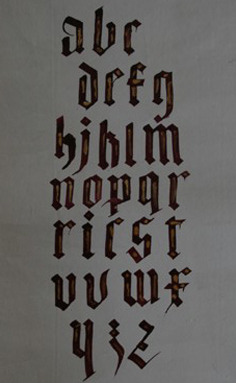 abc
defg
hjklm
nopqr
st
vvwx
yjz